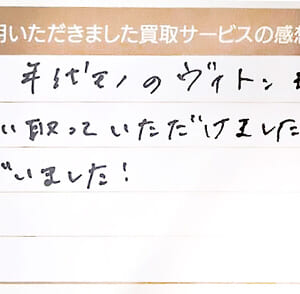 用いただきました買取サービスの感想
年代モノのヴィトン
い取っていただけました
ざいました!